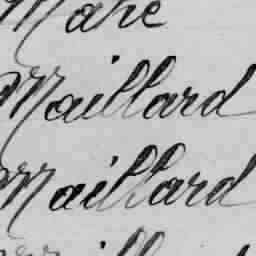 Maré
Maillard
Maillard